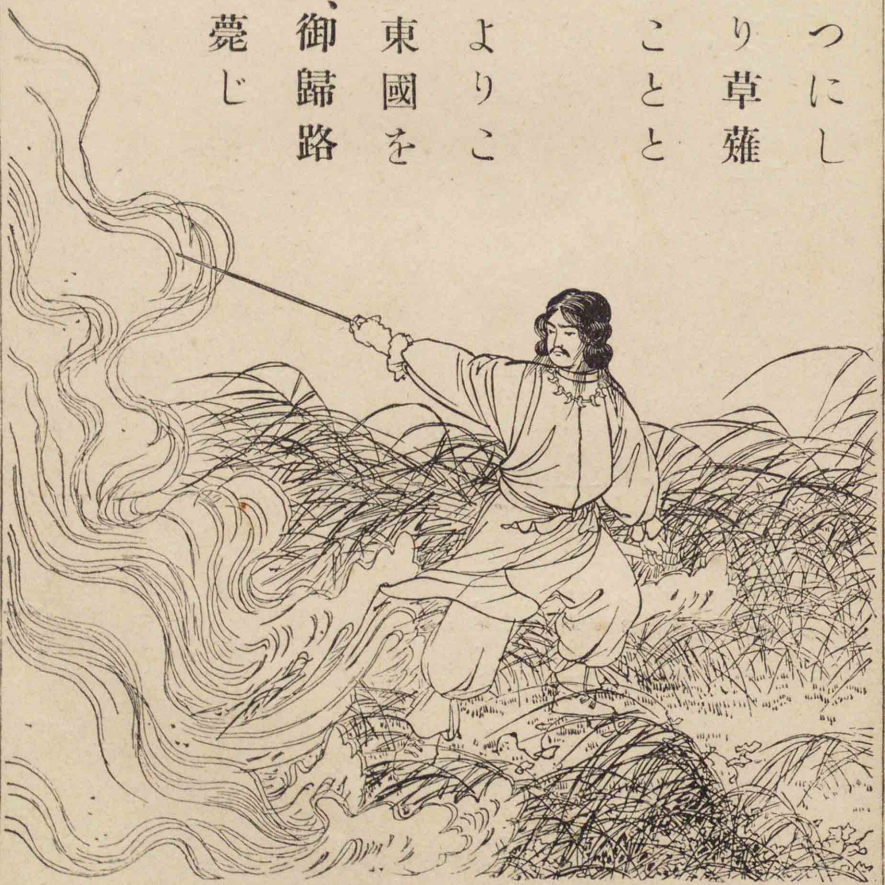 つにし
り草薙
ことと
よりこ
東國を
、御歸路
薨じ